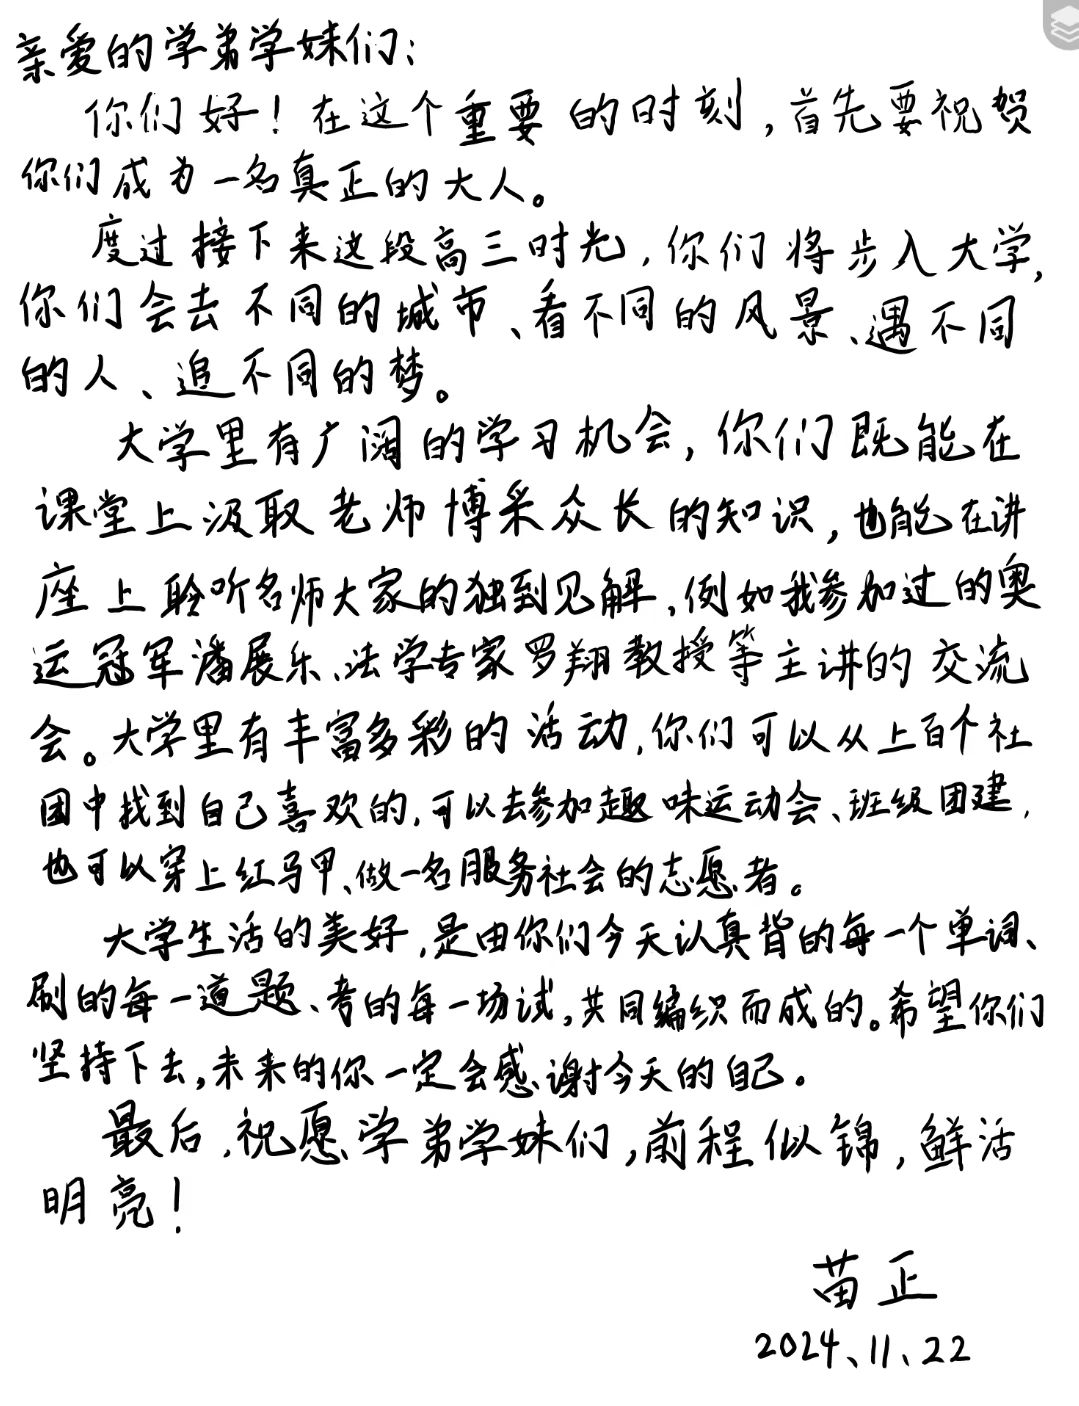 亲爱的学弟学妹们:
你们好!在这个重要的时刻,首先要祝贺
你们成为一名真正的大人。
度过接下来这段高三时光,你们将步入大学,
你们会去不同的城市、看不同的风景、遇不同
的人、追不同的梦。
大学里有广阔的学习机会,你们既能在
课堂上汲取老师博采众长的知识,也能在讲
座上聆听名师大家的独到见解,例如我参加过的奥
运冠军潘展乐、法学专家罗翔教授等主讲的交流
会。大学里有丰富多彩的活动,你们可以从上百个社
团中找到自己喜欢的,可以去参加趣味运动会、班级团建,
也可以穿上红马甲、做一名服务社会的志愿者。
大学生活的美好,是由你们今天认真背的每一个单词、
刷的每一道题、考的每一场试,共同编织而成的。希望你们
坚持下去,未来的你一定会感谢今天的自己。
最后,祝愿学弟学妹们,前程似锦,鲜活
明亮!
苗正
2024、11、22